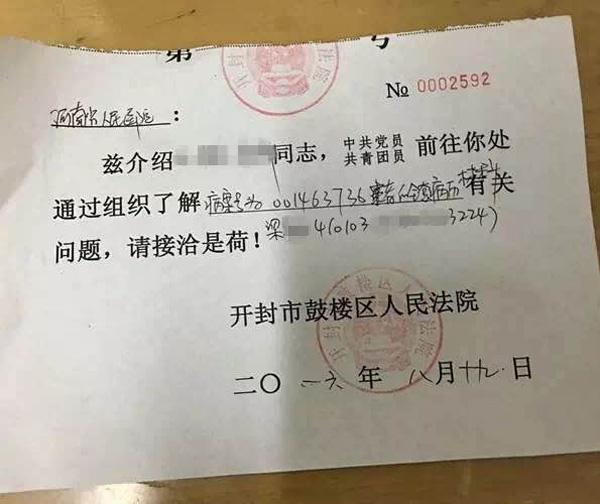 第 号
№ 0002592
河南省人民医院：
兹介绍 同志，中共党员 共青团员 前往你处
通过组织了解病案号为001463736 病历材料有关
问题，请接洽是荷！梁 410103 3224)
开封市鼓楼区人民法院
二〇一六年八月十九日